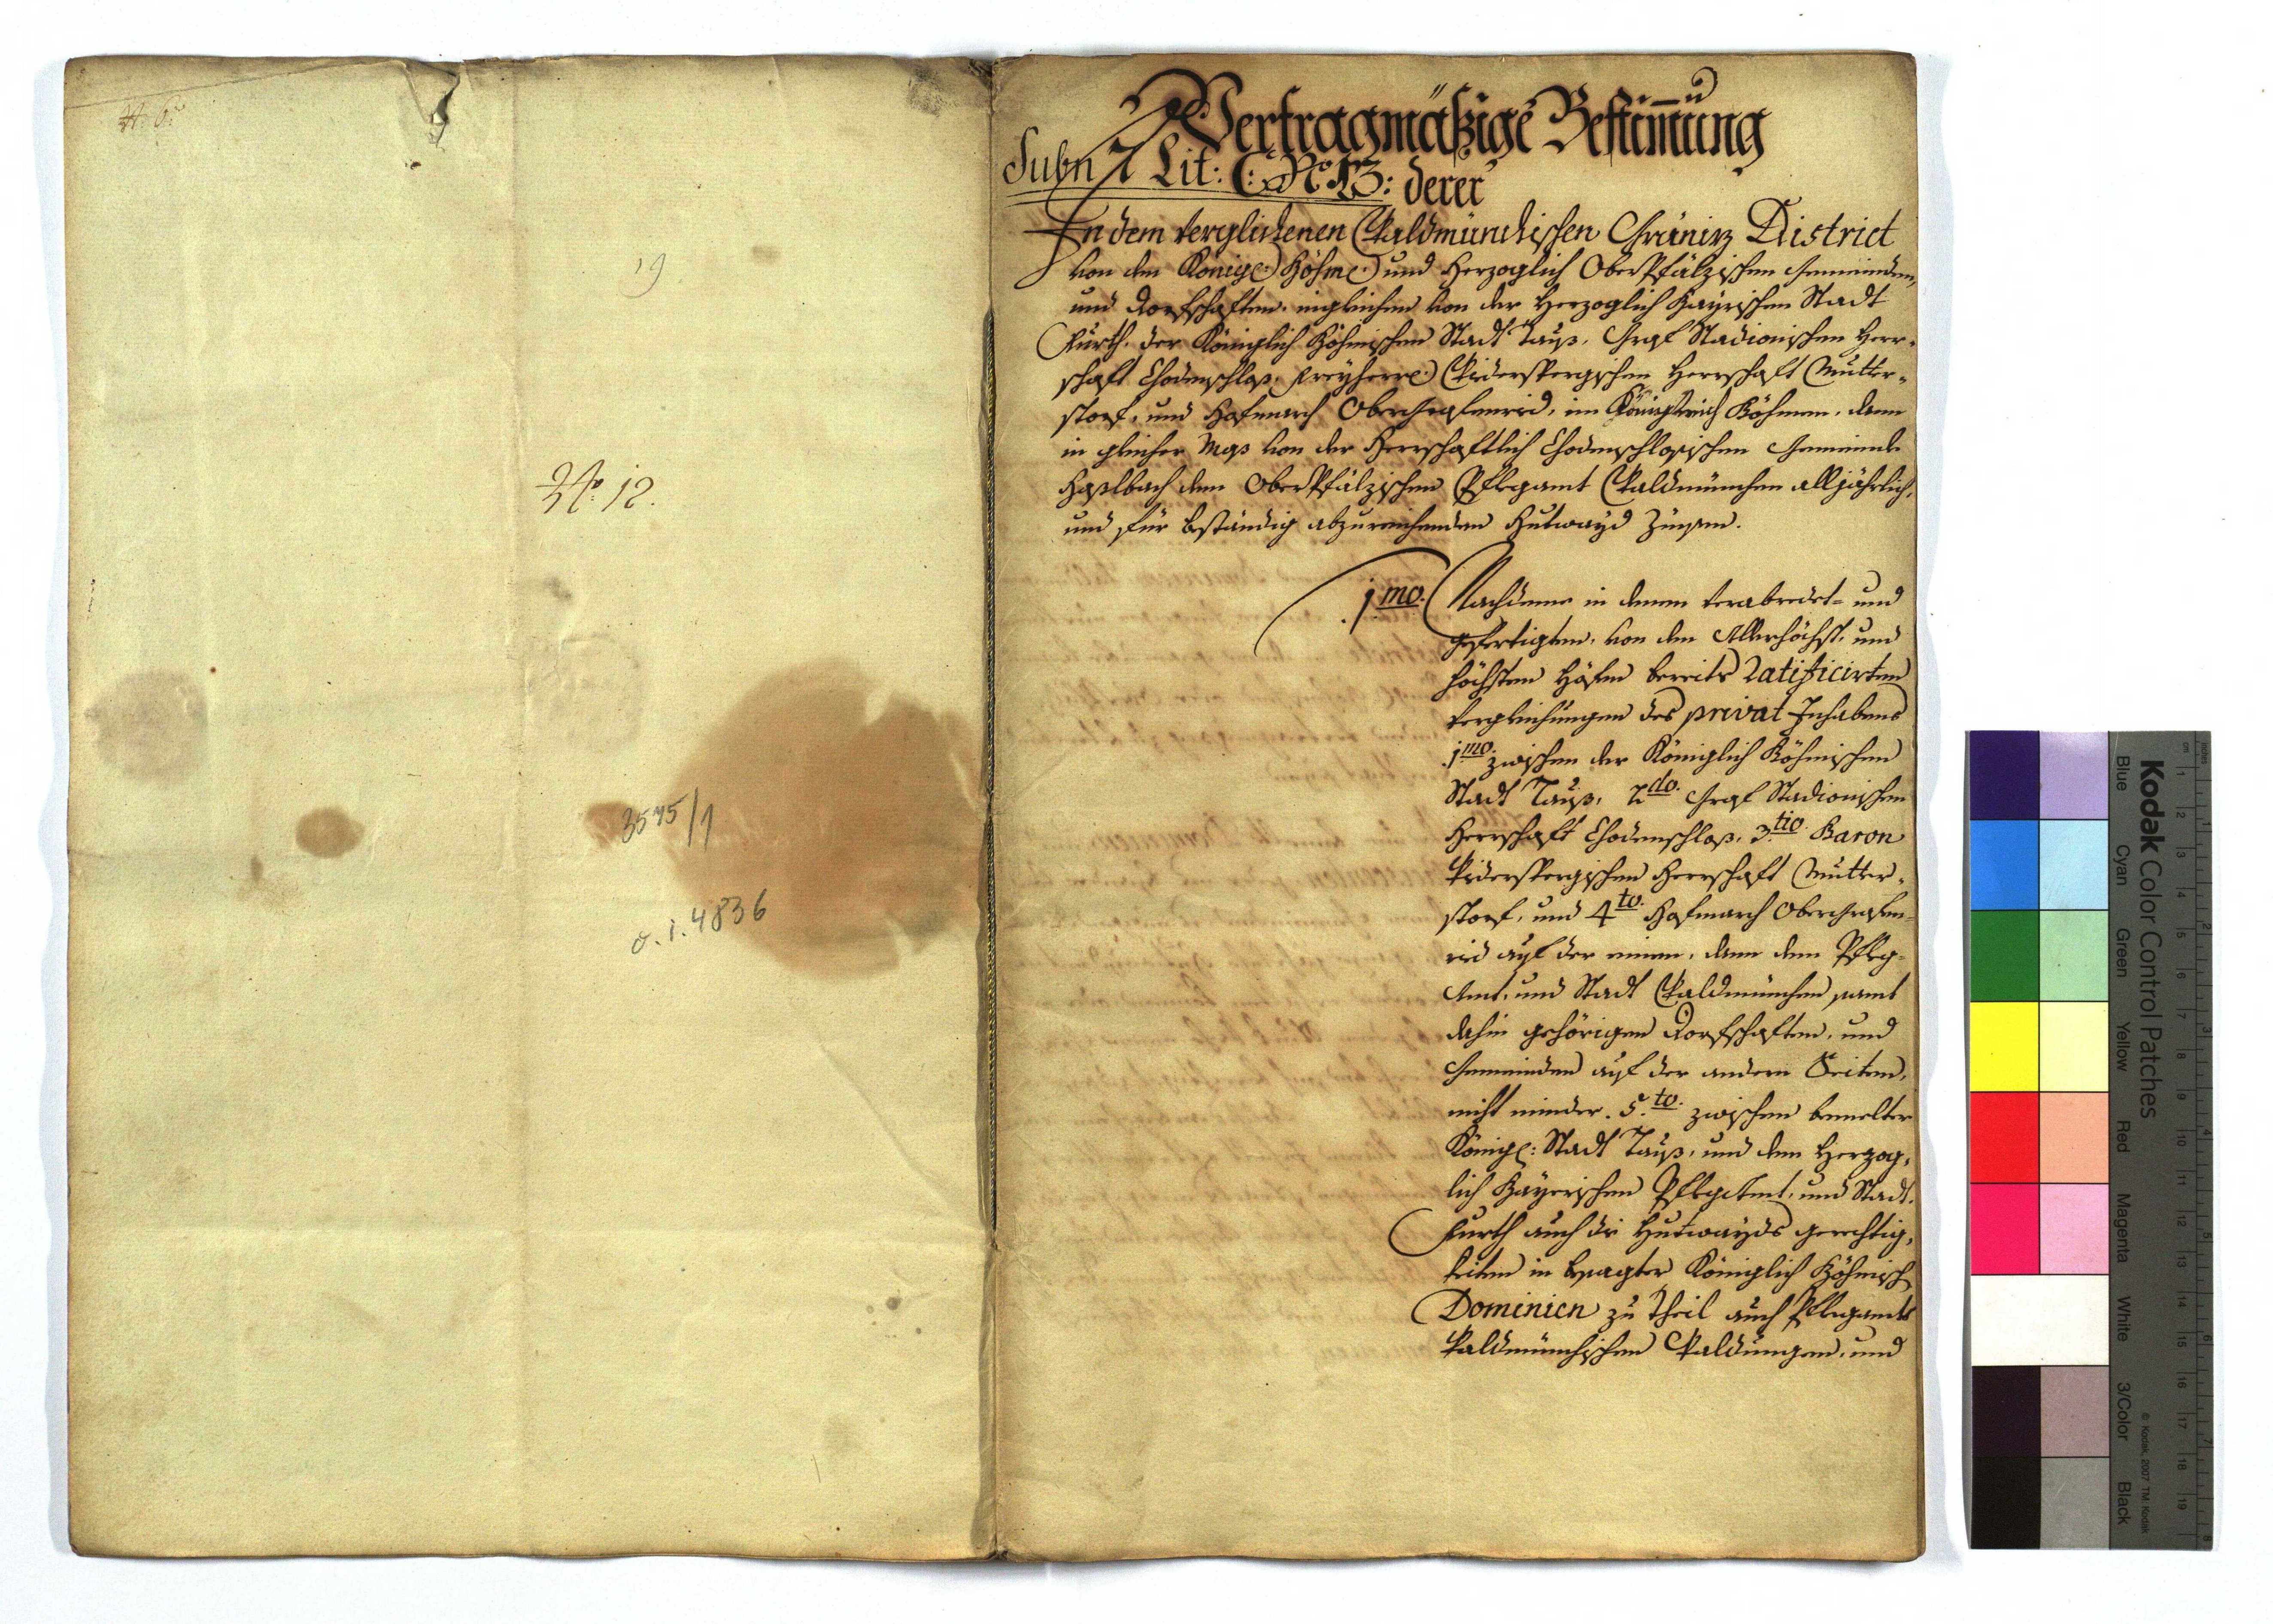 N: 6:
19
No: 12.
3575/1
o. i. 4836
Vertragmäßige Bestimmung
Subn 7 Lit: C: No 13: derer
In dem verglichenen Waldmünchischen Gräniz District
von den Königl: Böhm: und Herzoglich OberPfälzischen Gemeinden,
und Dorfschaften, ingleichen von der Herzoglich Bayrischen Stadt
Furth, der Königlich Böhmischen Stadt Tauß, Graf Stadionischen Herr-
schaft Chodenschloß, Freyherrl: Widerspergischen Herrschaft Mutter-
storf, und Hofmarch Obergrafenried, im Königreich Böhmen, dann
in gleicher Maß von der Herrschaftlich Chodenschloßischen Gemeinde
Haßlbach dem OberPfälzischen Pflegamt Waldmünchen alljährlich,
und für beständig abzureichenden Hutwayd Zinsen.
1mo. Nachdeme in denen verabredet- und
gefertigten, von den Allerhöchst- und
höchsten Höfen bereits ratificirten
Vergleichungen des privat Inhabens
1mo. zwischen der Königlich Böhmischen
Stadt Tauß, 2do. Graf Stadionischen
Herrschaft Chodenschloß, 3tio. Baron
Widerspergischen Herrschaft Mutter-
storf, und 4to. Hofmarch Obergrafen-
ried auf der einen, dann dem Pfleg-
Amt, und Stadt Waldmünchen samt
dahin gehörigen Dorfschaften, und
Gemeinden auf der andern Seiten,
nicht minder 5to. zwischen bemelter
Königl: Stadt Tauß, und dem Herzog-
lich Bayerischen PflegAmt, und Stadt
Furth auch die Hutwayds gerechtig-
keiten in besagter Königlich Böhmisch
Dominien zu Theil auch Pflegamts
Waldmünchischen Waldungen, und
Kodak Color Control Patches
© Kodak, 2007 TM Kodak
Blue Cyan Green Yellow Red Magenta White 3/Color Black
inches 1 2 3 4 5 6 7 8
cm 1 2 3 4 5 6 7 8 9 10 11 12 13 14 15 16 17 18 19